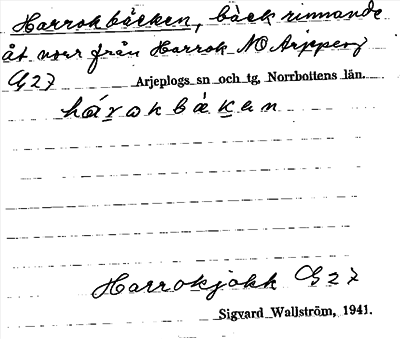 Harrokbäcken, bäck rinnande
åt norr från Harrok NO Arjeplog
G27 Arjeplogs sn och tg, Norrbottens län.
hárokbäkan
Harrokjåkk G27
Sigvard Wallström, 1941.